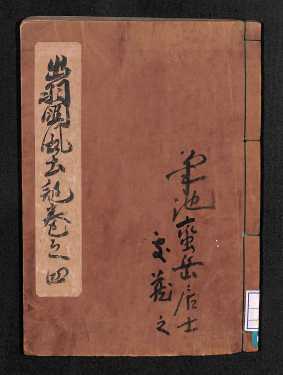 出羽国風土記巻之四
筆池蛮岳居士
家蔵之